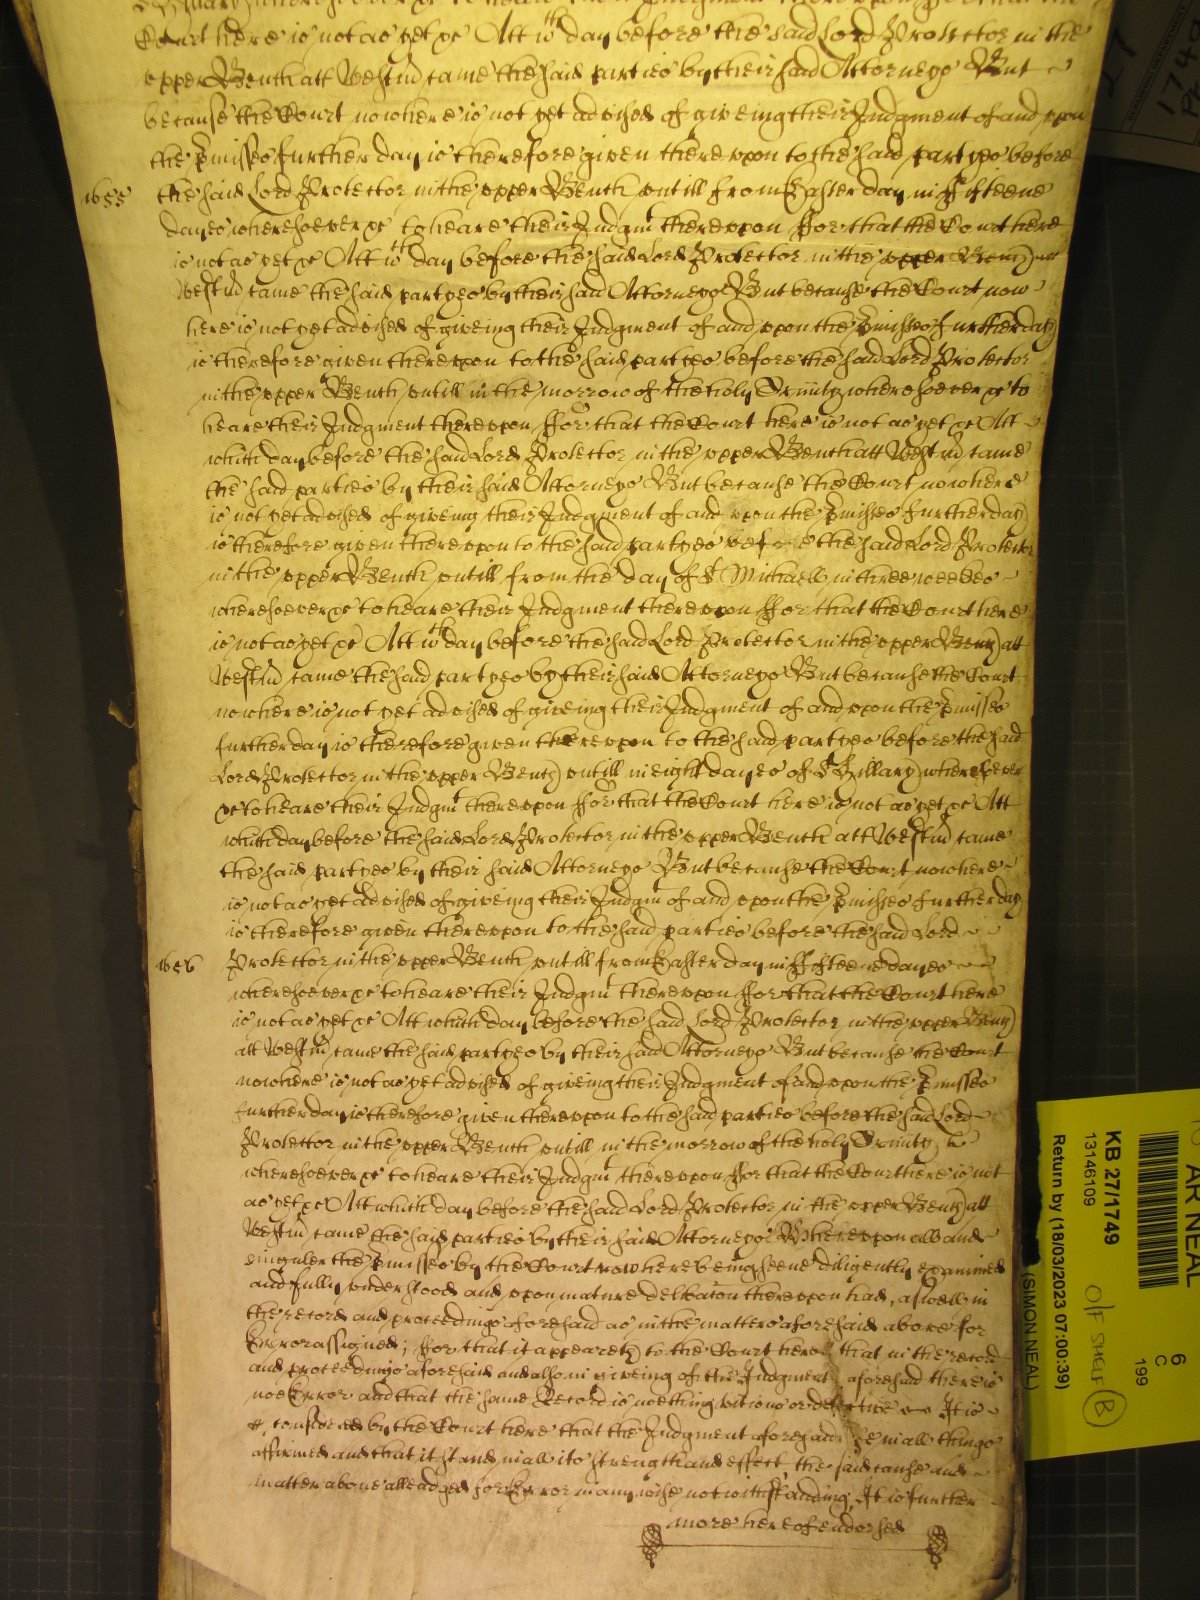 Court here is not as yet &c Att wch day before the said Lord Protector in the
upper Bench att Westmr came the said parties by their said Attorneys But
because the Court now here is not yet advised of giveing their Judgment of and upon
the pmisses further day is therefore given thereupon to the said partyes before
1655 the said Lord Protector in the upper Bench untill from Easter day in fifteene
dayes wheresoever &c to heare their Judgmt thereupon ffor that the Court here
is not as yet &c Att wch day before the said Lord Protector in the upper Bench att
Westmr came the said partyes by their said Attorneys But because the Court now
here is not yet advised of giveing their Judgment of and upon the pmisses further day
is therefore given thereupon to the said partyes before the said Lord Protector
in the upper Bench untill in the morrow of the holy Trinity wheresoever &c to
heare their Judgment thereupon ffor that the Court here is not as yet &c Att
which day before the said Lord Protector in the upper Bench att Westmr came
the said parties by their said Attorneys But because the Court now here
is not yet advised of giveing their Judgment of and upon the pmisses further day
is therefore given thereupon to the said partyes before the said Lord Protector
in the upper Bench untill from the day of St Michaell in three weekes
wheresoever &c to heare their Judgment thereupon ffor that the Court here
is not as yet &c Att wch day before the said Lord Protector in the upper Bench att
Westmr came the said partyes by their said Attorneys But because the Court
now here is not yet advised of giveing their Judgment of and upon the pmisses
further day is therefore given thereupon to the said partyes before the said
Lord Protector in the upper Bench untill in eight dayes of St Hillary wheresoever
&c to heare their Judgmt thereupon ffor that the Court here is not as yet &c Att
which day before the said Lord Protector in the upper Bench att Westmr came
the said partyes by their said Attorneys But because the Court now here
is not as yet advised of giveing their Judgmt of and upon the pmisses further day
is therefore given thereupon to the said parties before the said Lord
1656 Protector in the upper Bench untill from Easter day in fifteene dayes
wheresoever &c to heare their Judgmt thereupon ffor that the Court here
is not as yet &c Att which day before the said Lord Protector in the upper Bench
att Westmr came the said partyes by their said Attorneys But because the Court
now here is not as yet advised of giveing their Judgment of and upon the pmisses
further day is therefore given thereupon to the said parties before the said Lord
Protector in the upper Bench untill in the morrow of the holy Trinity
wheresoever &c to heare their Judgmt thereupon ffor that the Court here is not
as yet &c Att which day before the said Lord Protector in the upper Bench att
Westmr came the said parties by their said Attorneys Whereupon all and
singuler the pmisses by the Court now here being seene diligently examined
and fully understood and upon mature delibacon thereupon had, aswell in
the record and proceedings aforesaid as in the matters aforesaid above for
Error assigned; ffor that it appeareth to the Court here that in the record
and proceedings aforesaid and also in giveing of the Judgment aforesaid there is
noe Error and that the same Record is nothing vitious or defective It is
considered by the Court here that the Judgment aforesaid be in all things
affirmed and that it stand in all its strength and effect, the said cause and
matter above alleadged for Error in any wise notwithstanding, It is further
more hereof endorsed
AR NEAL
6
C
199
KB 27/1749
13146109
O/F SHELF B
Return by (18/03/2023 07:00:39)
(SIMON NEAL)